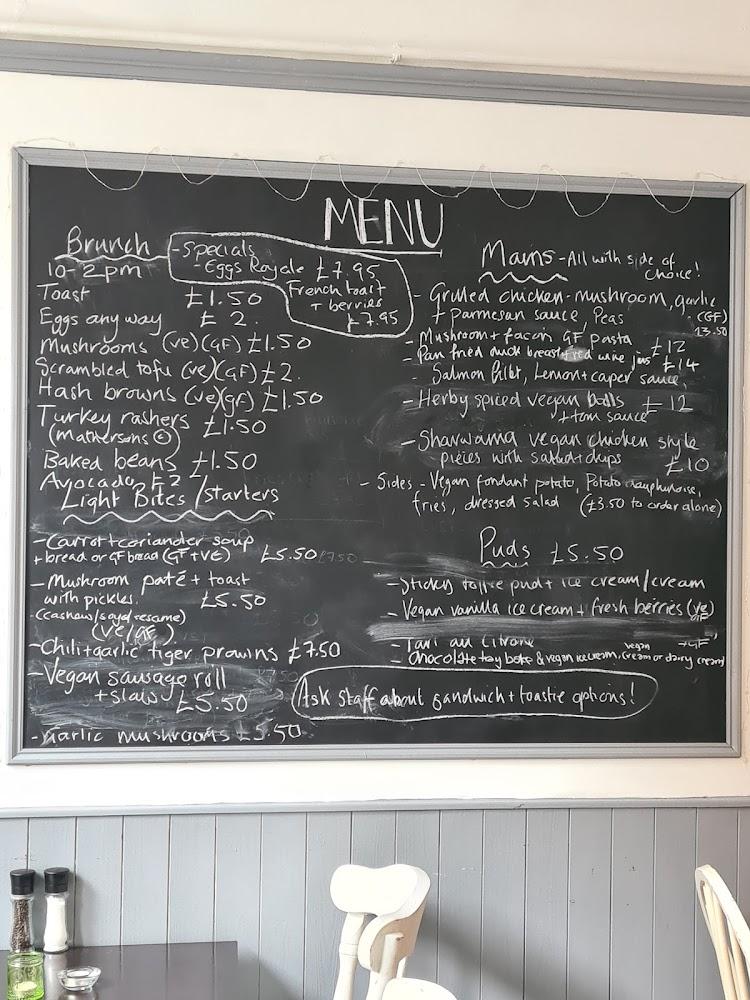 MENU
Brunch
10-2pm
- Specials
- Eggs Royale £7.95
French toast
+ berries
£7.95
Toast £1.50
Eggs any way £2.
Mushrooms (ve)(GF) £1.50
Scrambled tofu (ve)(GF) £2
Hash browns (ve)(gf) £1.50
Turkey rashers £1.50
(mathersons ©)
Baked beans £1.50
Avocado £2
Light Bites/starters
- Carrot + coriander soup
+ bread or GF bread (GF+VE) £5.50
- Mushroom paté + toast
with pickles. £5.50
(cashews/soya/sesame)
(VE/GF)
- Chili + garlic tiger prawns £7.50
- Vegan sausage roll
+ slaw £5.50
- Garlic mushrooms £5.50
Mains - All with side of
choice!
- Grilled chicken - mushroom, garlic
+ Parmesan sauce, Peas (GF)
13.50
- Mushroom + facon GF pasta £12
- Pan fried duck breast + red wine jus £14
- Salmon fillet, Lemon + caper sauce
- Herby spiced vegan balls £12
+ tom sauce
- Shawama vegan chicken style
pieces with salad + dips £10
- Sides - Vegan fondant potato, Potato dauphinoise,
fries, dressed salad (£3.50 to order alone)
Puds £5.50
- Sticky toffee pud + ice cream/cream
- Vegan vanilla ice cream + fresh berries (ve)
GF
- Tart au citron
- Chocolate tray bake & vegan ice cream, (cream or dairy cream)
vegan +GF
Ask staff about sandwich + toastie options!